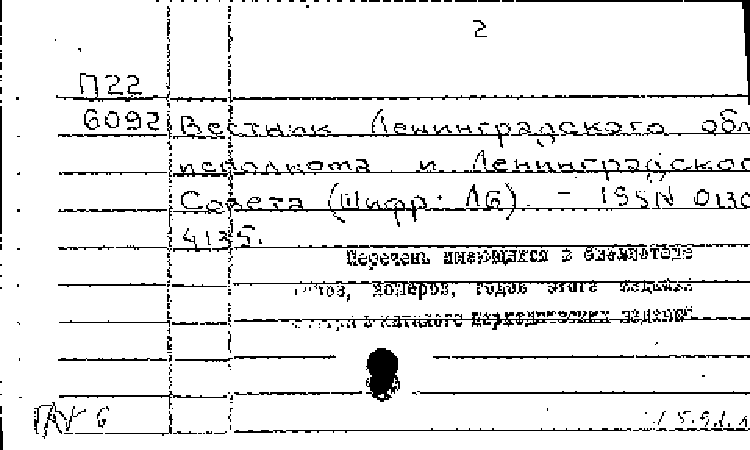 2
П22
6092 Вестник Ленинградского обл
исполкома и Ленинградског
Совета (Шифр: ЛБ). - ISSN 0130
4135.
Перечень имеющихся в библиотеке
номеров, годов этого издания
в каталоге периодических изданий
6